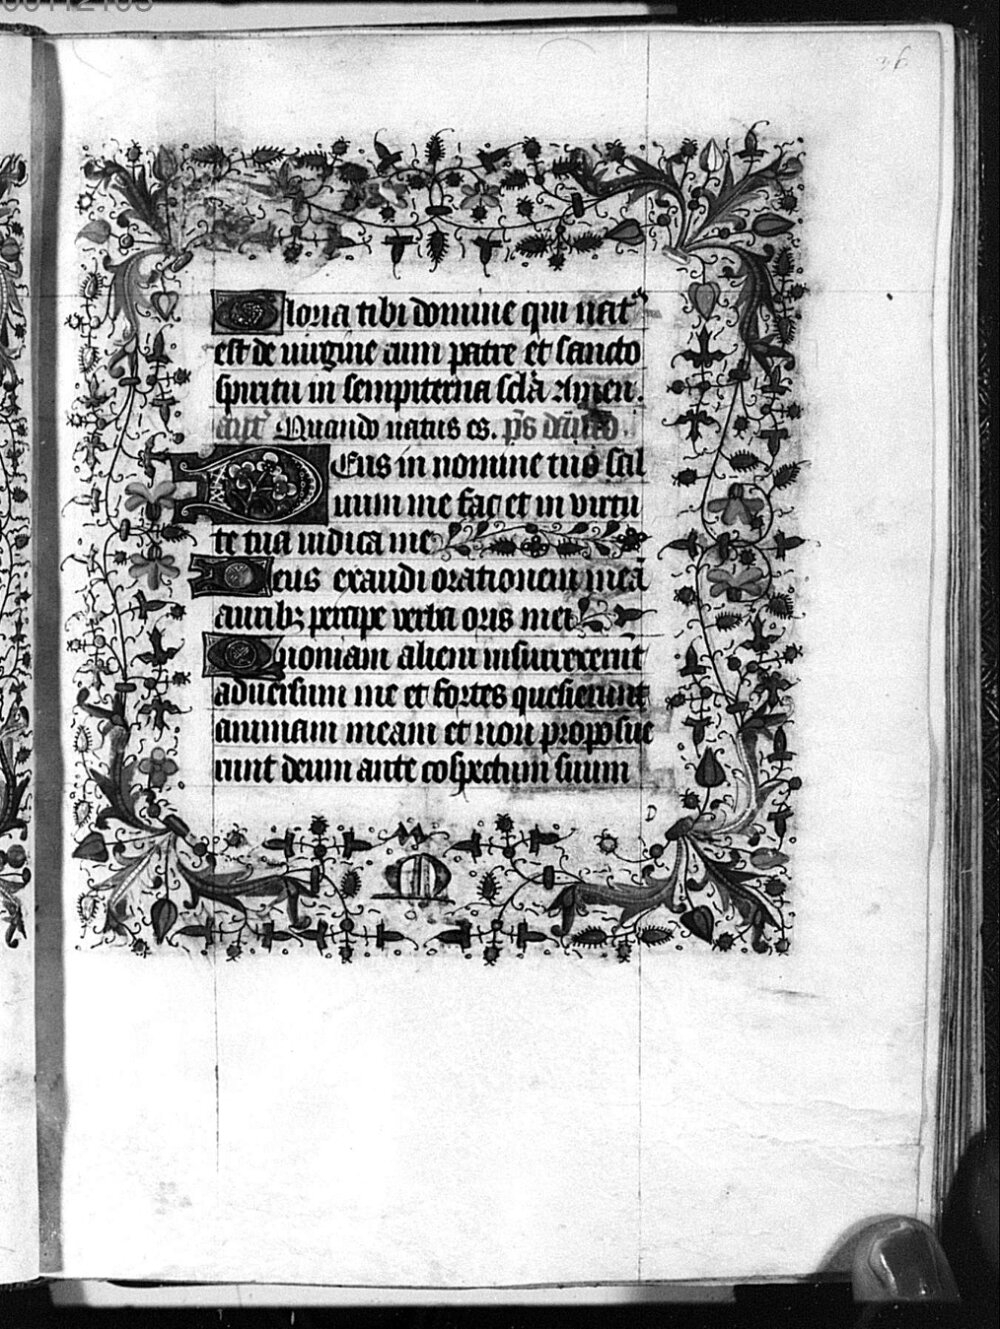 36
Gloria tibi domine qui nat᾿
est de uirgine cum patre et sancto
spiritu in sempiterna scl̄a Amen.
añt Quando natus es. p̄s dauid.
Deus in nomine tuo sal
uum me fac et in virtu
te tua iudica me
Deus exaudi orationem meā
auribꝫ percipe verba oris mei
Quoniam alieni insurrexerūt
aduersum me et fortes quesierunt
animam meam et non proposue
runt deum ante cōspectum suum
D
M